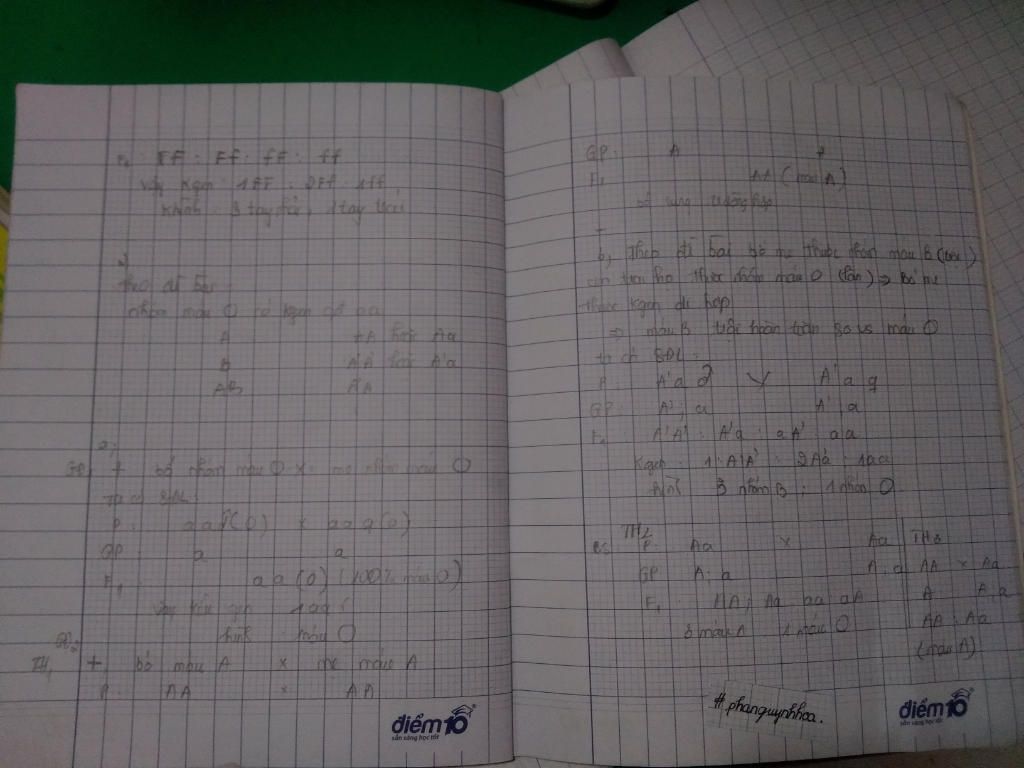 F₁ : FF : Ff : fF : ff
Vậy kgen : 1FF : 2Ff : 1ff
khình : 3 tay phải, 1 tay trái
2,
theo đề bài :
nhóm máu O có kgen aa
A AA hoặc Aa
B A'A' hoặc A'a
AB A'A
a,
GĐ₁ + bố nhóm máu O × mẹ nhóm máu O
Ta có SĐL
P : aa ♂ (O) × aa ♀ (O)
GP : a a
F₁ : aa (O) (100% máu O)
Vậy kiểu gen 1aa
hình : máu O
GĐ₂
TH₁ +, bố máu A × mẹ máu A
P : AA × AA
điểm10
sẵn sàng học tốt
GP : A A
F₁ AA (máu A)
b, Theo đề bài bố mẹ thuộc nhóm máu B (trội)
con của họ thuộc nhóm máu O (lặn) => Bố mẹ
thuộc kgen dị hợp
=> máu B trội hoàn toàn so vs máu O
ta có SĐL :
P : A'a ♂ × A'a ♀
GP : A' ; a A' a
F₁ A'A' : A'a : aA' : aa
Kgen : 1 A'A' : 2A'a : 1aa
hình 3 nhóm B ; 1 nhóm O
TH₂
P : Aa × Aa
GP A ; a A ; a
F₁ : AA ; Aa aa aA
3 máu A 1 máu O
TH₃
AA × Aa
A A : a
AA : Aa
(máu A)
#phanquynhhoa.
điểm10
sẵn sàng học tốt